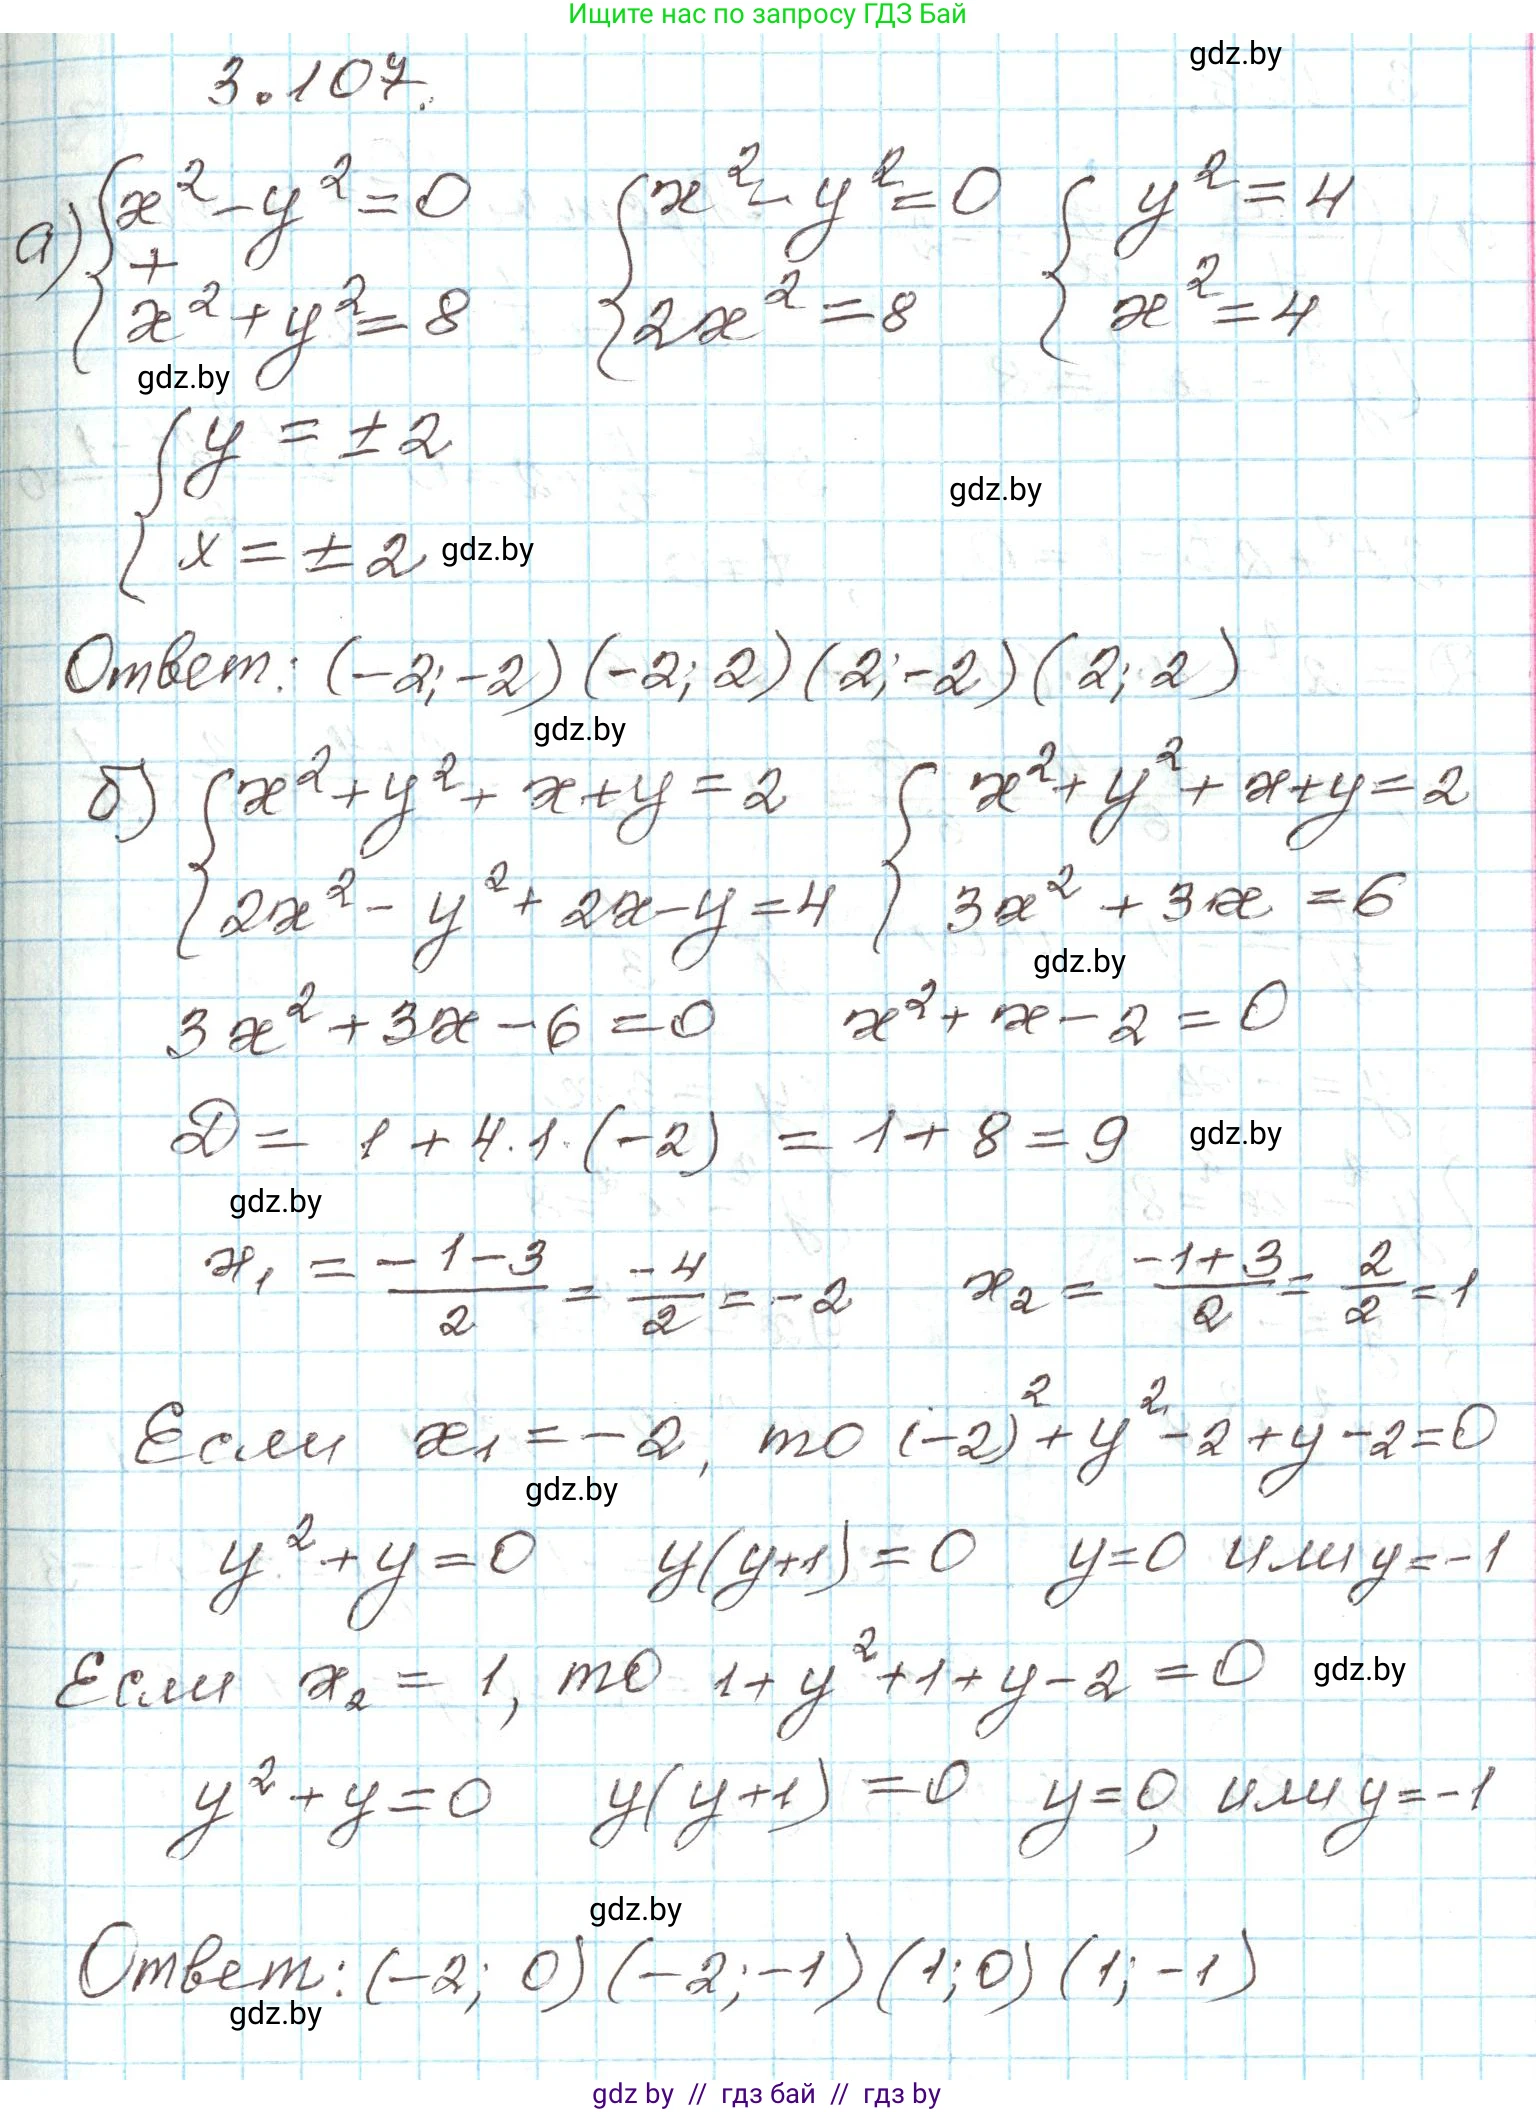 Ищите нас по запросу ГДЗ Бай
gdz.by
3.107.
а) { x² - y² = 0 { x² - y² = 0 { y² = 4
+
x² + y² = 8 2x² = 8 x² = 4
gdz.by
{ y = ±2
gdz.by
x = ±2 gdz.by
Ответ: (-2; -2) (-2; 2) (2; -2) (2; 2)
gdz.by
б) { x² + y² + x + y = 2 { x² + y² + x + y = 2
2x² - y² + 2x - y = 4 3x² + 3x = 6
gdz.by
3x² + 3x - 6 = 0 x² + x - 2 = 0
D = 1 + 4 · 1 · (-2) = 1 + 8 = 9 gdz.by
gdz.by
x₁ = (-1-3)/2 = -4/2 = -2 x₂ = (-1+3)/2 = 2/2 = 1
Если x₁ = -2, то (-2)² + y² - 2 + y - 2 = 0
gdz.by
y² + y = 0 y(y+1) = 0 y = 0 или y = -1
Если x₂ = 1, то 1 + y² + 1 + y - 2 = 0 gdz.by
y² + y = 0 y(y+1) = 0 y = 0, или y = -1
gdz.by
Ответ: (-2; 0) (-2; -1) (1; 0) (1; -1)
gdz.by
gdz by // гдз бай // гдз by